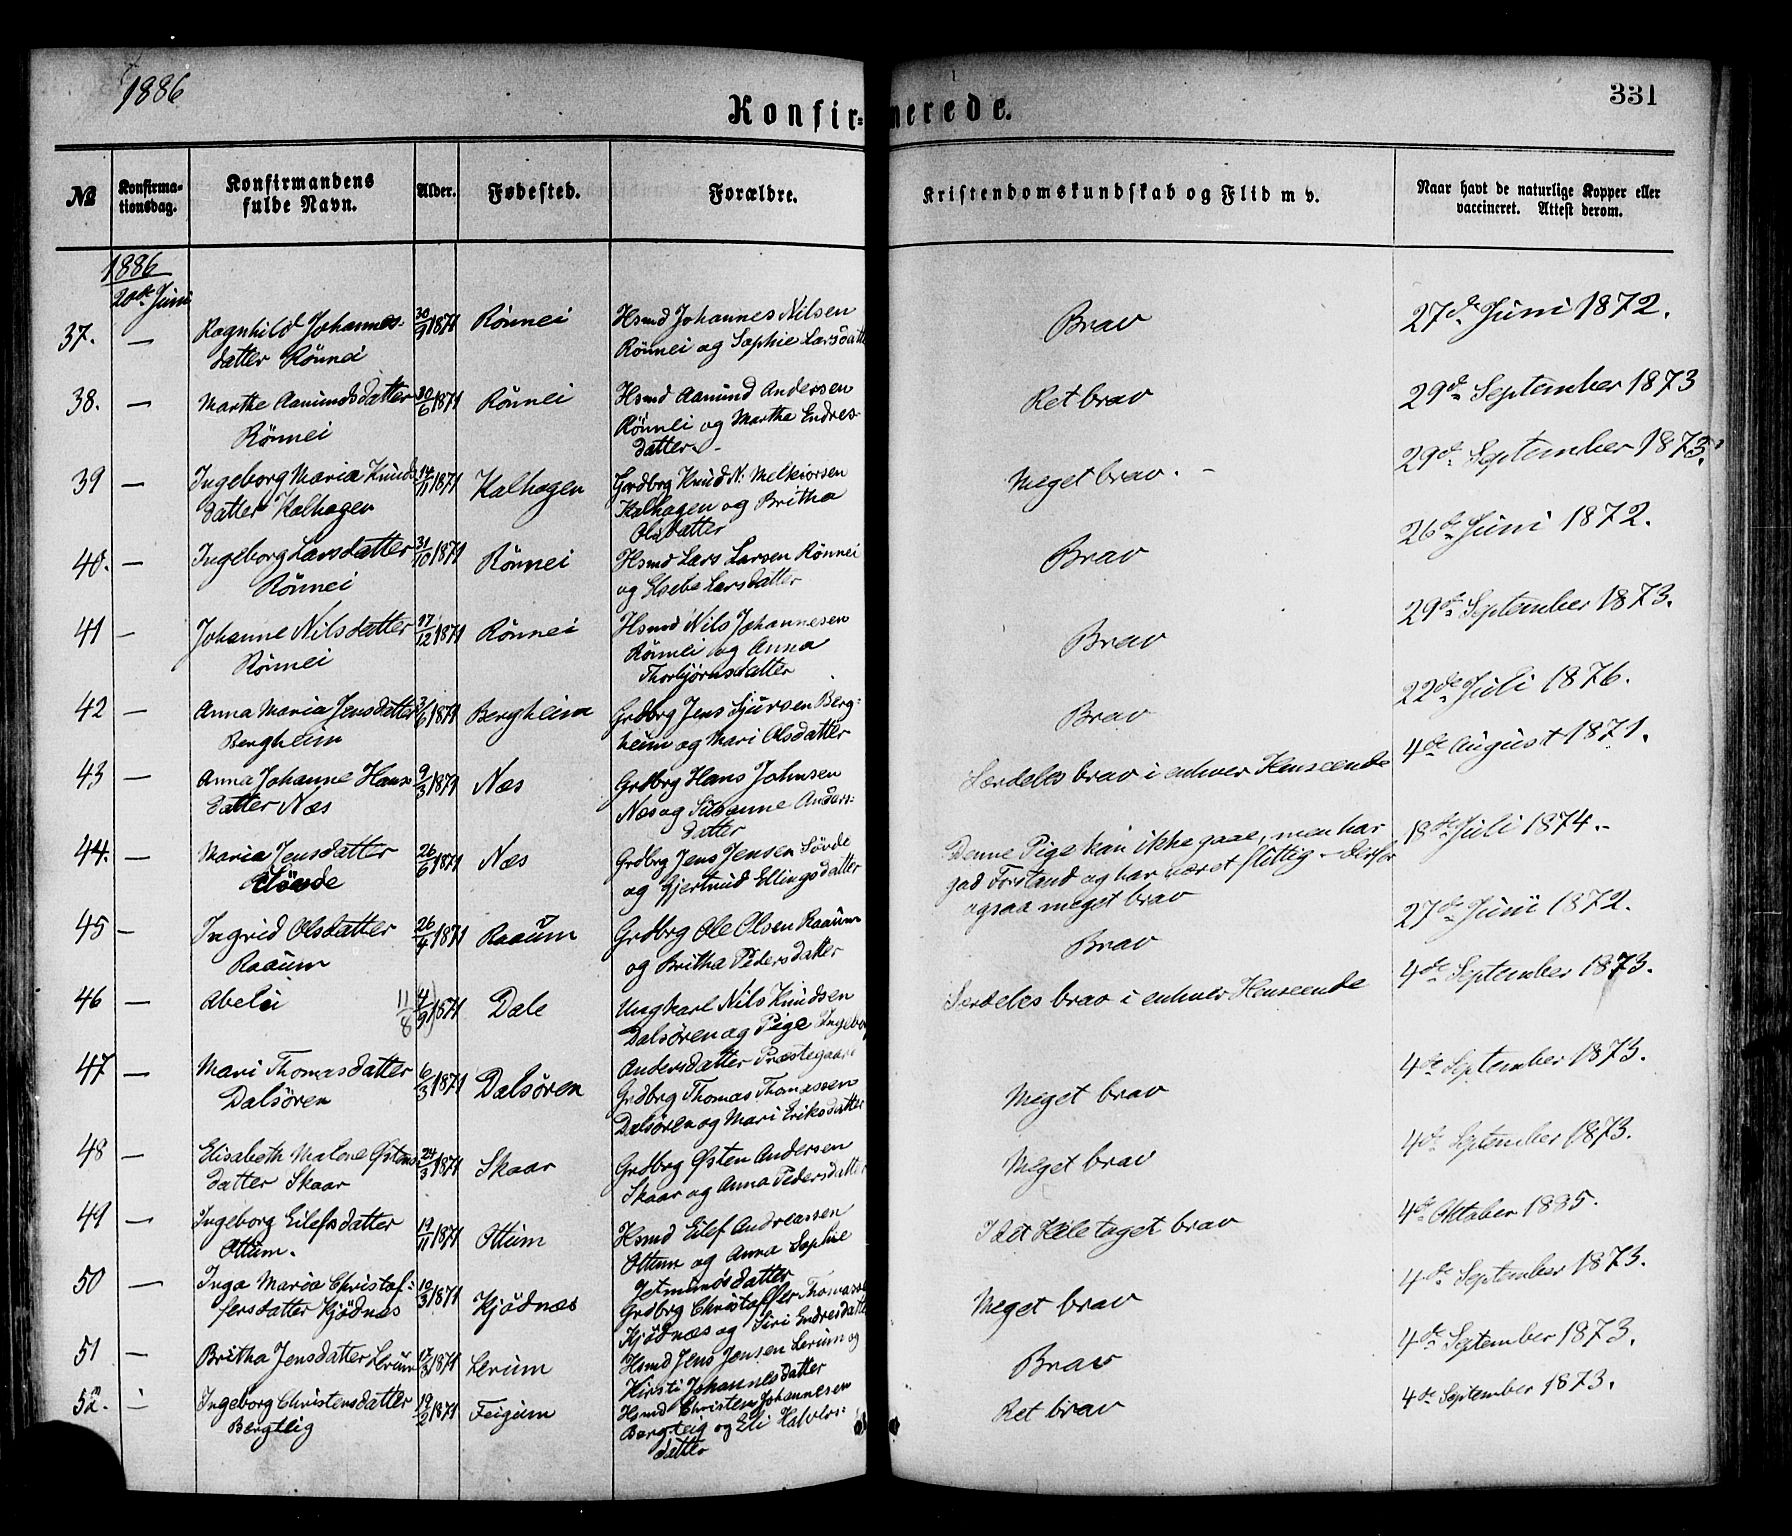 1886
Konfirmerede.
331
No
Konfirmationsdag.
Konfirmandens fulde Navn.
Alder.
Fødested.
Forældre.
Kristendomskundskab og Flid m v.
Naar havt de naturlige Kopper eller vaccineret. Attest derom.
1886
20de Juni
37. — Ragnhild Johannes- 30/9 1871 Rönnei Hsmd Johannes Nilsen Brav 27de Juni 1872.
datter Rönnei Rönnei og Sophie Larsdatter
38. — Marthe Aamundsdatter 30/6 1871 Rönnei Hsmd Aamund Andersen Ret brav 29de September 1873
Rönnei Rönnei og Martha Endres-
datter.
39 — Ingeborg Maria Knuds 14/11 1871 Kalhagen Grdbrg Knud N. Melkiorsen Meget brav. - 29de September 1873.
datter Kalhagen Kalhagen og Britha
Olsdatter
40. — Ingeborg Larsdatter 31/10 1871 Rönnei Hsmd Lars Larsen Rönnei Brav 26de Juni 1872.
Rönnei og Elsebe Larsdatter
41 — Johanne Nilsdatter 17/12 1871 Rönnei Hsmd Nils Johannesen Brav 29de September 1873.
Rönnei Rönnei og Anna
Thorbjørnsdatter
42 — Anna Maria Jensdatter 1871 Bergheim Grdbrg Jens Sjursen Berg- Brav 22de Juli 1876.
Bergheim heim og Mari Olsdatter
43 — Anna Johanne Hans 9/3 1871 Næs Grdbrg Hans Johnsen Særdeles brav i enhver Henseende 4de August 1871.
datter Næs Næs og Susanne Anders-
datter
44. — Maria Jensdatter 26/6 1871 Næs Grdbrg Jens Jensen Sövde Denne Pige kan ikke gaae, men har 18de Juli 1874.-
Sövde og Gjertrud Ellingsdatter god Forstand og har været flittig - derfor
ogsaa meget brav
45 — Ingrid Olsdatter 26/4 1871 Raaum Grdbrg Ole Olsen Raaum Brav 27de Juni 1872.
Raaum og Britha Pedersdatter
46 — Abelü 11/8 4/9) 1871 Dale Ungkarl Nils Knudsen Særdeles brav i enhver Henseende 4de September 1873.
Dalsøren og Pige Ingeborg
Andersdatter Præstegaard
47 — Mari Thomasdatter 6/3 1871 Dalsören Grdbrg Thomas Thomassen Meget brav 4de September 1873.
Dalsören Dalsören og Mari Eriksdatter
48 — Elisabeth Malene Østens 24/3 1871 Skaar Grdbrg Østen Andersen Meget brav 4de September 1873.
datter Skaar Skaar og Anna Pedersdatter
49 — Ingeborg Eilefsdatter 19/11 1871 Ottum Hsmd Eilef Andreassen I det Hele taget brav 4de Oktober 1885.
Ottum. Ottum og Anna Sophie
Jetmundsdatter
50 — Inga Maria Christof- 10/3 1871 Kjödnæs Grdbrg Christoffer Thomassen Meget brav 4de September 1873.
fersdatter Kjödnæs Kjödnæs og Siri Endresdatter
51 — Britha Jensdatter Lerum 17/3 1871 Lerum Hsmd Jens Jensen Lerum og Brav 4de September 1873.
Kirsti Johannesdatter
52. - Ingeborg Christensdatter 19/2 1871 Feigum Hsmd Christen Johannesen Ret brav 4de September 1873.
Bergteig Bergteig og Eli Halvors-
datter